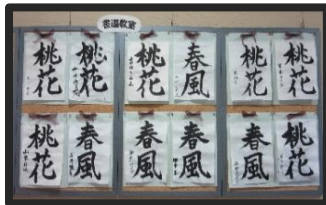 書道教室
桃花
桃花
桃花
春風
桃花
桃花
桃花
春風
春風
春風
春風
桃花